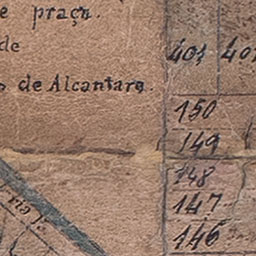 e praça.
de
o de Alcantara.
401 401
150
149
148
147
146